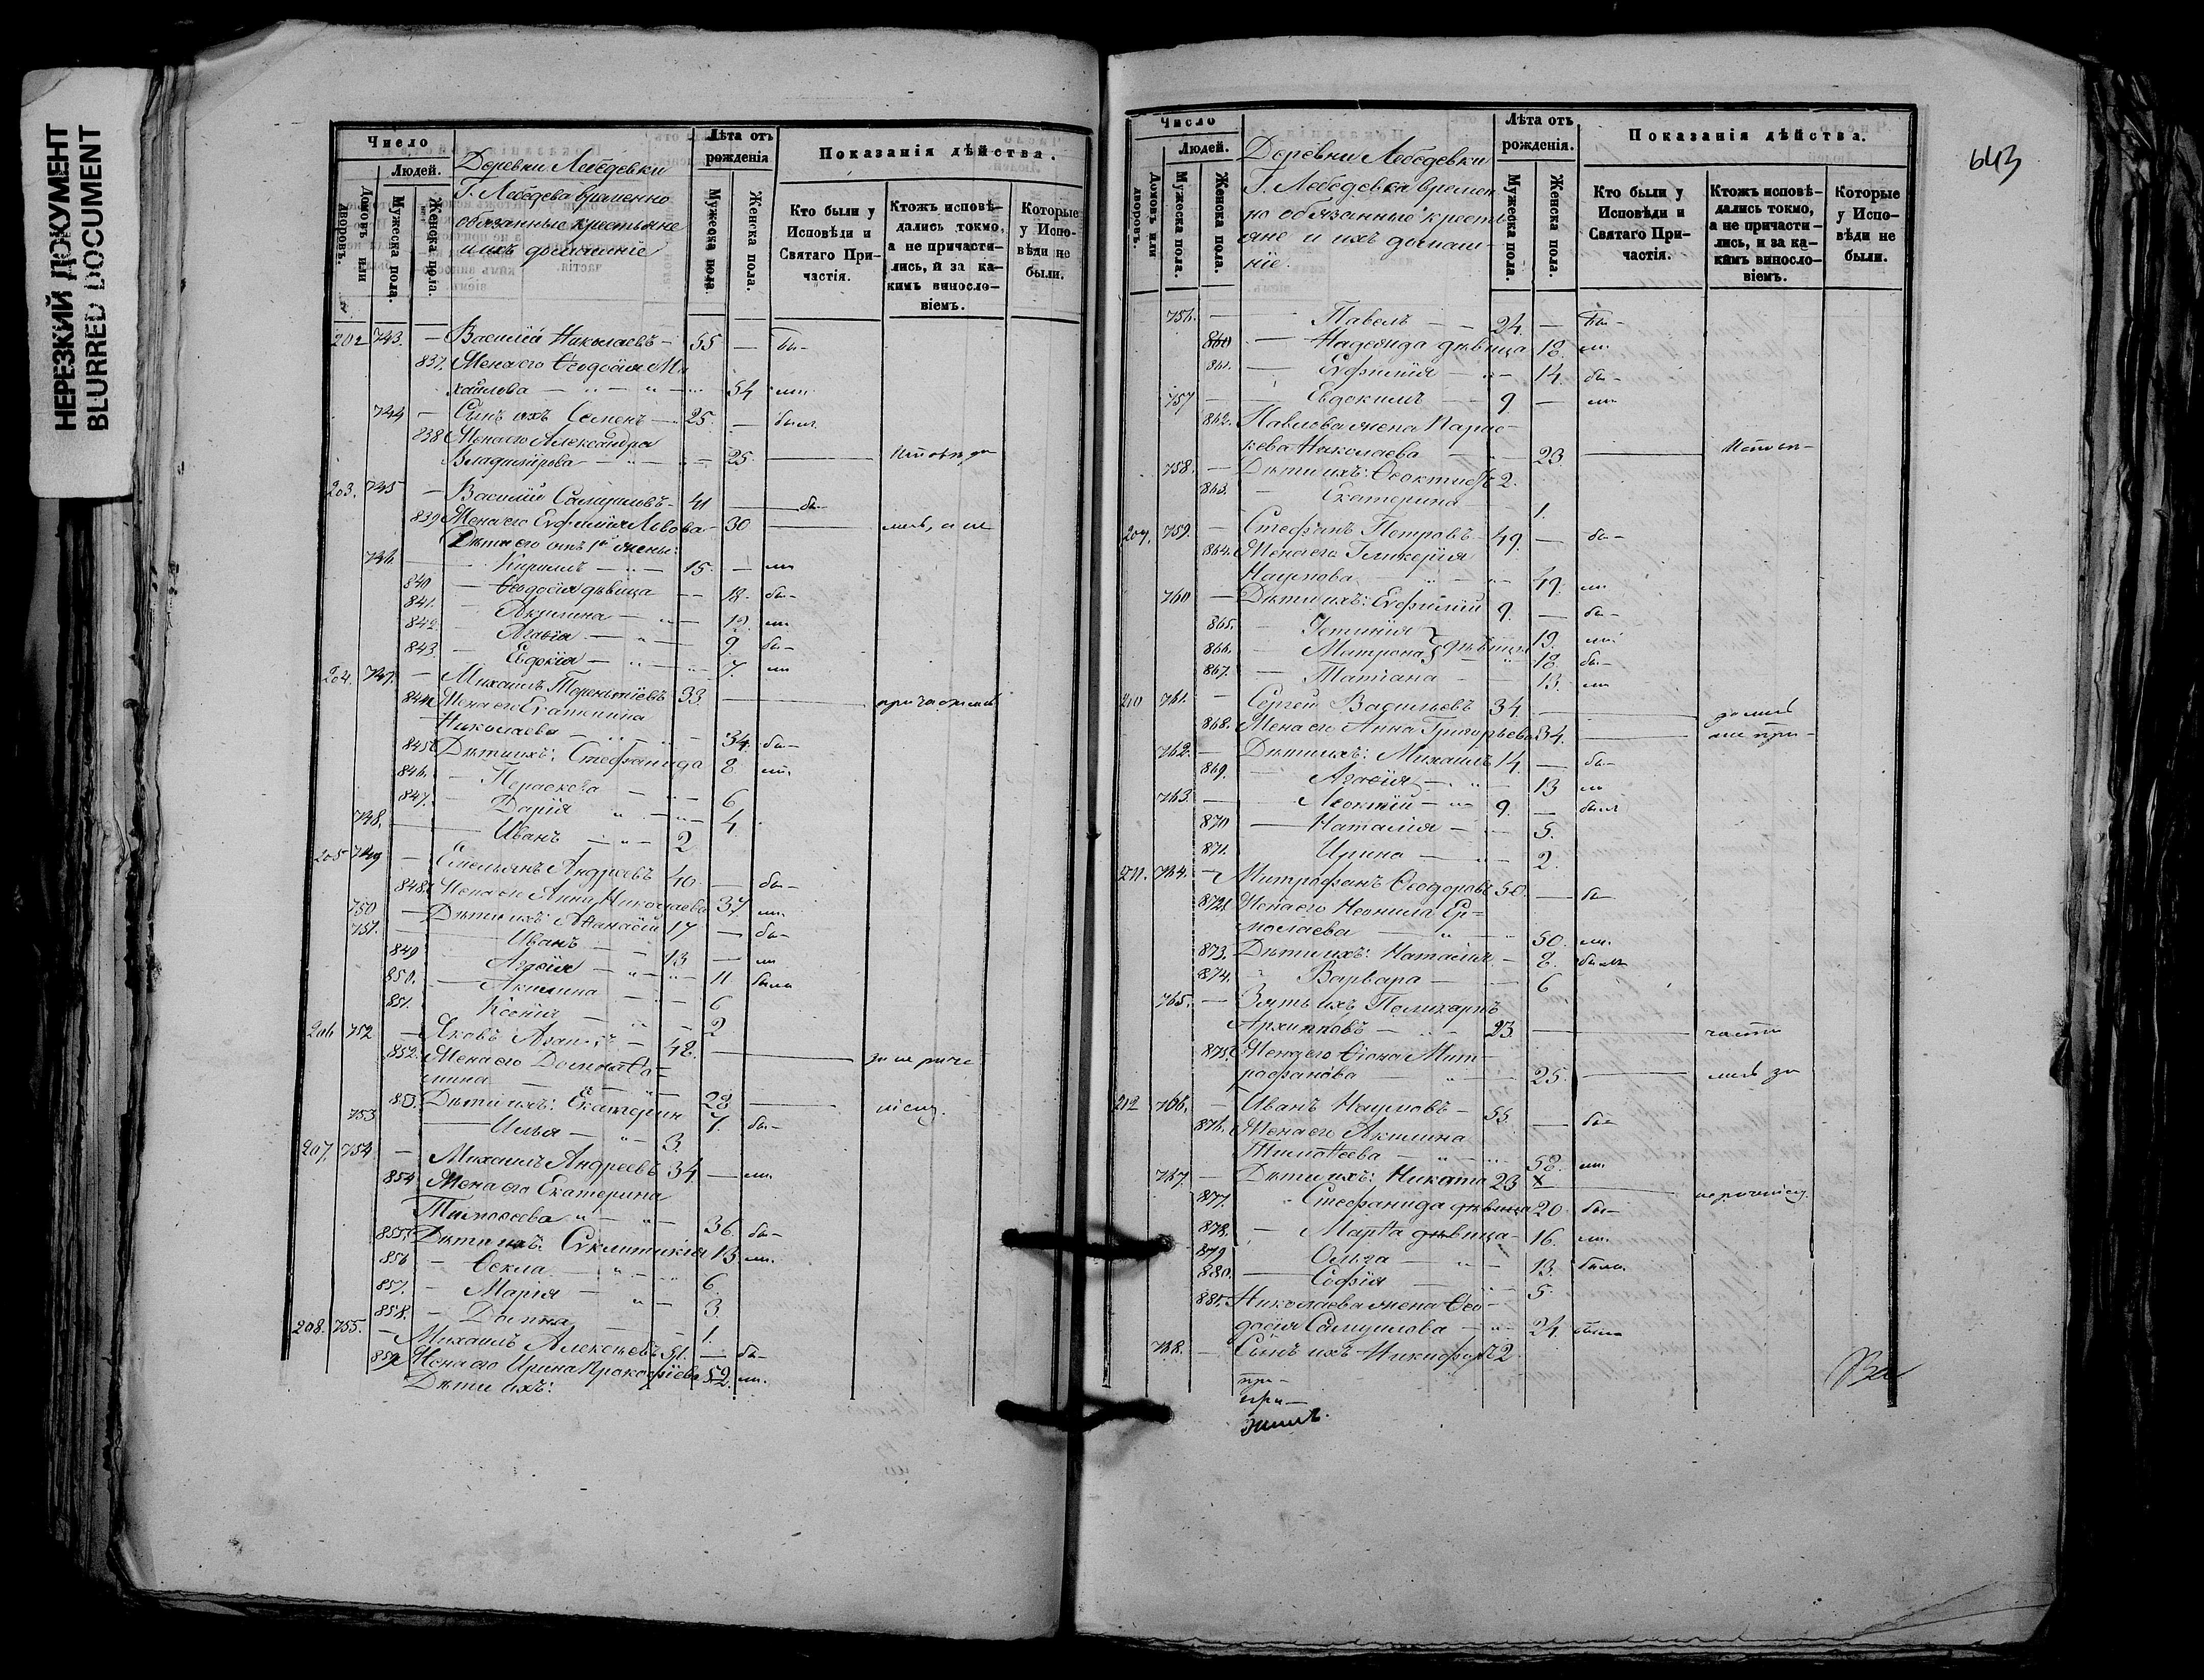 НЕРЕЗКИЙ ДОКУМЕНТ
BLURRED DOCUMENT
Число
Людей.
Домовъ или дворовъ.
Мужеска пола.
Женска пола.
Деревни Лебедевки
Г. Лебедева временно
обязанные крестьяне
и ихъ домашніе
Лѣта отъ рожденія
Мужеска пола.
Женска пола.
Показанія дѣйства.
Кто были у Исповѣди и Святаго Причастія.
Ктожъ исповѣдались токмо, а не причастились, и за какимъ винословіемъ.
Которые у Исповѣди не были.
202 743. — Василій Николаевъ — 55 — бы-
837. Жена его Ѳеодосія Ми
хайлова — 54 ли
744 — Сынъ ихъ Семенъ — 25. — былъ
838 Жена его Александра
Владимірова — 25. — исповѣда
203. 745 — Василій Самуиловъ — 41 — бы-
839 Жена его Евфимія Львова — 30 — лись, а не
Дѣти его отъ 1й жены:
746 — Кириллъ — 15. — ли
840 — Ѳеодосія дѣвица — 18. бы-
841. — Акилина — 12. ли
842. — Агаѳія — 9. бы-
843. — Евдокія — 7. ли
204. 747. — Михаилъ Терентіевъ 33. — причастились
844. Жена его Екатерина
Николаева — 34. бы-
845. Дѣти ихъ: Стефанида 8 ли
846. — Параскева — 6
847. — Дарія — 4
748. — Иванъ — 2
205 749 — Емельянъ Андреевъ 40 — бы-
848. Жена его Анна Николаева 37. ли
750 — Дѣти ихъ: Аѳанасій 17 — бы-
751. — Иванъ — 13 — ли
849 — Агаѳія — 11. была
850. — Акилина — 6
851. — Ксенія — 2
206 752 — Яковъ — 48. — за не приче
852. Жена его Домна Ѳо-
мина — 28
853. Дѣти ихъ: Екатерин 7. бы-
753 — Илья — 3.
207. 754 — Михаилъ Андреевъ 34 — ли
854 Жена его Екатерина
Тимоѳеева — 36. бы-
855. Дѣти ихъ: Сунклитикія 13 ли.
856 — Ѳекла — 6.
857. — Марія — 3.
858. — Домна — 1.
208. 755. — Михаилъ Алексѣевъ 51. — бы-
859 Жена его Ирина Прокофіева 52. ли.
Дѣти ихъ:
643
Число
Людей.
Домовъ или дворовъ.
Мужеска пола.
Женска пола.
Деревни Лебедевки
Г. Лебедева времен
но обязанные кресть
яне и ихъ домаш-
ніе.
Лѣта отъ рожденія.
Мужеска пола.
Женска пола.
Показанія дѣйства.
Кто были у Исповѣди и Святаго Причастія.
Ктожъ исповѣдались токмо, а не причастились, и за какимъ винословіемъ.
Которые у Исповѣди не были.
756. — Павелъ — 24. — бы-
860 — Надежда дѣвица 18. ли
861. — Евфимія — 14. бы-
757 — Евдокимъ — 9 — ли
862. Павлова жена Парас-
кева Николаева — 23. — исповѣ-
758. — Дѣти ихъ: Ѳеоктистъ 2.
863. — Екатерина — 1.
209. 759. — Стефанъ Петровъ — 49. — бы-
864. Жена его Гликерія
Наумова — 49. ли
760 — Дѣти ихъ: Евфимій 9. — бы-
865. — 19. ли
866. — Матрона дѣвицы 18. бы-
867. — Татіана — 13. ли
210 761. — Сергей Васильевъ 34. — дались
868. Жена его Анна Григорьева 34. — не при-
762. — Дѣти ихъ: Михаилъ 14. — бы-
869. — Агаѳія — 13 ли
763. — Леонтій — 9. — былъ
870 — Наталія — 5.
871. — Ирина — 2.
211. 764. — Митрофанъ Ѳеодоровъ 50. — бы-
872. Жена его Неонила Ер-
молаева — 50. ли.
873. Дѣти ихъ: Наталія — 8. была
874. — Варвара — 6
765. — Зять ихъ Поликарпъ
Архиповъ — 23. — части
875. Жена его Ѳіона Мит-
рофанова — 25. — лись за
212 766. — Иванъ Наумовъ — 55. — бы-
876. Жена его Акилина
Тимоѳеева — 58. ли.
767. — Дѣти ихъ: Никита 23 x
877. — Стефанида дѣвица 20. бы-
878. — Марѳа дѣвица — 16. ли.
879 — Ольга — 13. была
880. — Софія — 5.
881. Николаева жена Ѳео-
досія Самуилова — 24. была
768. — Сынъ ихъ Никифоръ 2.